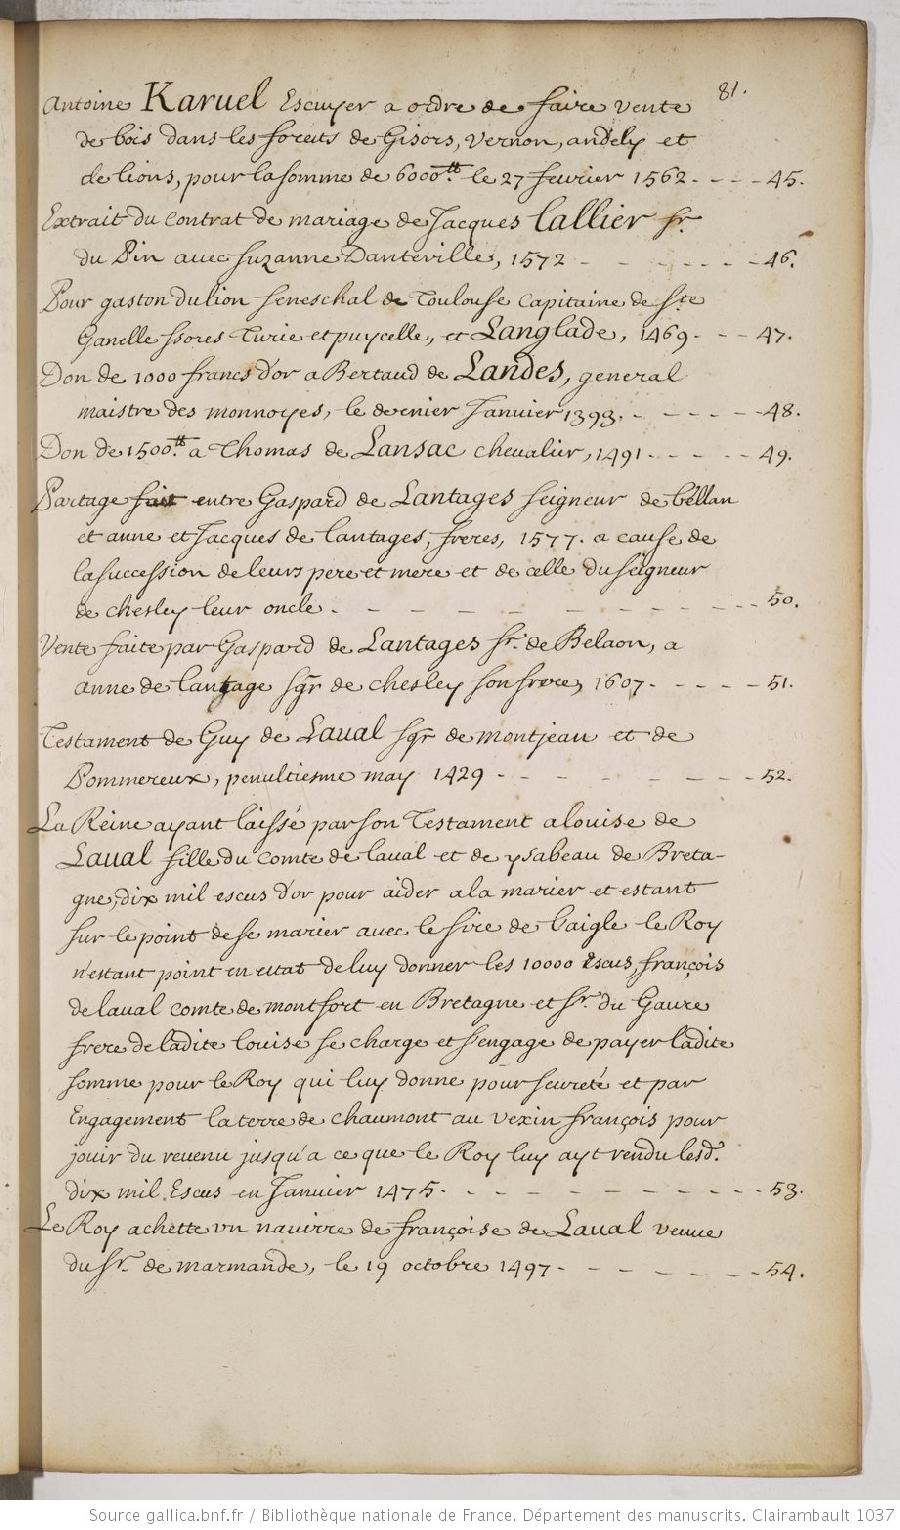 81.
Antoine Karuel Escuyer a ordre de faire vente
de bois dans les forests de Gisors, Vernon, andely et
de lions, pour la somme de 6000tt. le 27 fevrier 1562. - - - 45.
Extrait du contrat de mariage de Jacques Lallier sr.
du Pin avec suzanne Danteville, 1572 - - - - - - - 46.
Pour gaston du lion seneschal de Toulouse capitaine de ste
Ganelle ssores Turie et puycelle, et Langlade, 1469. - - - 47.
Don de 1000 francs d'or a Bertaud de Landes, general
maistre des monnoyes, le dernier Janvier 1393. - - - - - 48.
Don de 1500tt. a Thomas de Lansac chevalier, 1491 - - - - 49.
Partage fait entre Gaspard de Lantages seigneur de bellan
et anne et Jacques de lantages, freres, 1577. a cause de
la succession de leurs pere et mere et de celle du seigneur
de chesley leur oncle. - - - - - - - - - - - 50.
Vente faite par Gaspard de Lantages sr. de Belaon, a
anne de lantage sgr de chesley son frere, 1607. - - - - 51.
Testament de Guy de Laval sgr de montjean et de
Pommereux, penultiesme may 1429 - - - - - - - - 52.
La Reine ayant laissé par son Testament a louise de
Laval fille du comte de laval et de ysabeau de Breta-
gne, dix mil escus d'or pour aider a la marier et estant
sur le point de se marier avec le sire de laigle le Roy
n'estant point en estat de luy donner les 10000 escus, françois
de laval comte de montfort en Bretagne et sr. du Gavre
frere de ladite louise se charge et s'engage de payer ladite
somme pour le Roy qui luy donne pour seureté et par
Engagement la terre de chaumont au vexin françois pour
jouir du revenu jusqu'a ce que le Roy luy ayt rendu lesd.
dix mil Escus en Janvier 1475. - - - - - - - - - - 53.
Le Roy achette un navirre de françoise de Laval veuve
du sr. de marmande, le 19 octobre 1497 - - - - - - - 54.
Source gallica.bnf.fr / Bibliothèque nationale de France. Département des manuscrits. Clairambault 1037